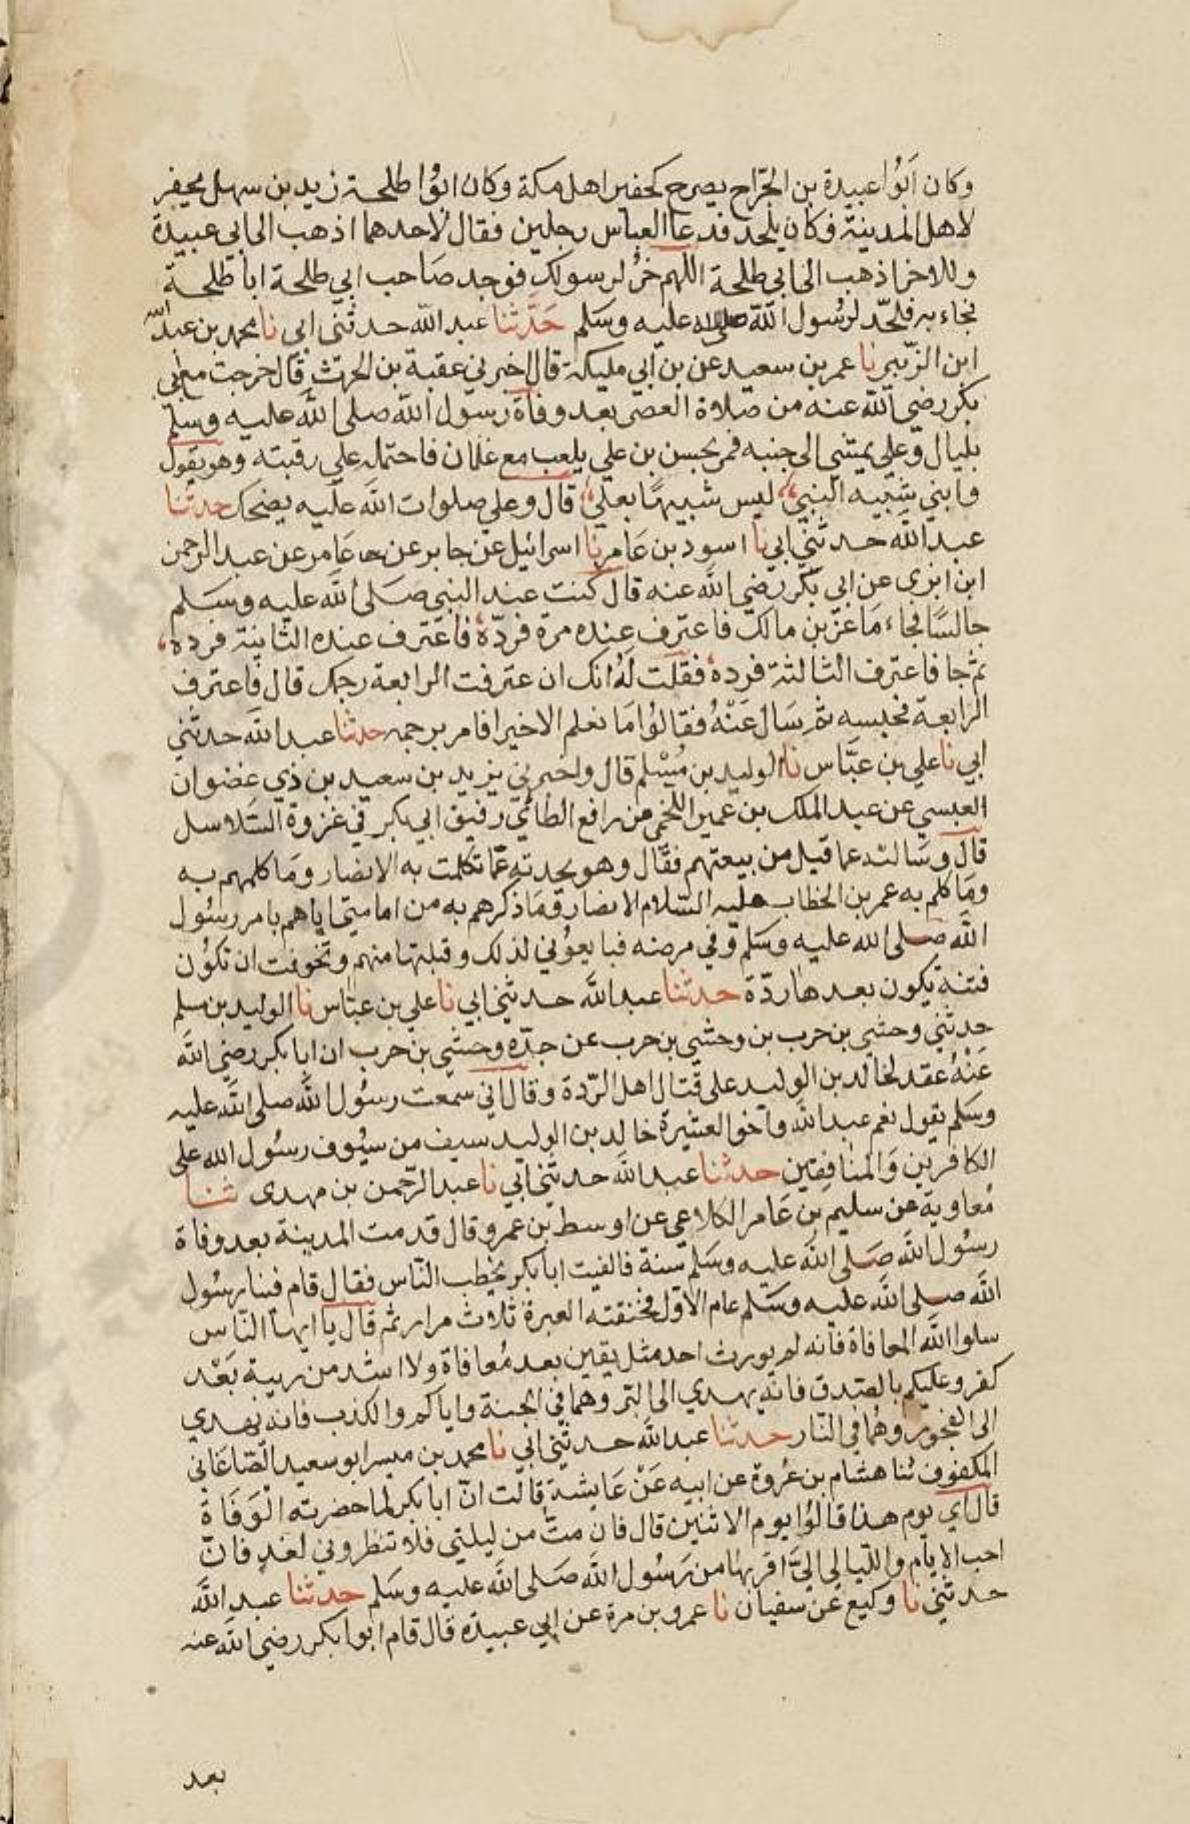 وكان ابوا عبيدة بن الجراح يصرح كحفير اهل مكة وكان ابوا طلحة زيد بن سهل يحفر
لاهل المدينة فكان يلحد فدعا العباس رجلين فقال لاحدهما اذهب الى ابي عبيدة
وللاخر اذهب الى ابي طلحة اللهم خر لرسولك فوجد صاحب ابي طلحة ابا طلحة
فجاء به فلحد لرسول الله صلى الله عليه وسلم حدثنا عبد الله حدثنى ابى نا محمد بن عبد الله
ابن الزبير نا عمر بن سعيد عن بن ابي مليكة قال اخبرني عقبة بن الحرث قال خرجت مع ابي
بكر رضي الله عنه من صلاة العصر بعد وفاة رسول الله صلى الله عليه وسلم
بليال وعلي يمشي الى جنبه فمر بحسن بن علي يلعب مع غلمان فاحتمله على رقبته وهو يقول
وابني شبيه النبي ليس شبيها بعلي قال وعلي صلوات الله عليه يضحك حدثنا
عبد الله حدثني ابي نا اسود بن عامر نا اسرائيل عن جابر عن عامر عن عبد الرحمن
ابن ابزى عن ابي بكر رضي الله عنه قال كنت عند النبي صلى الله عليه وسلم
جالسا فجاء ماعز بن مالك فاعترف عنده مرة فرده فاعترف عنده الثانية فرده
ثم جا فاعترف الثالثة فرده فقلت له انك ان عترفت الرابعة رجمك قال فاعترف
الرابعة فحبسه ثم سال عنه فقالوا ما نعلم الا خيرا فامر برجمه حدثنا عبد الله حدثني
ابي نا علي بن عباس نا الوليد بن مسلم قال واخبرني يزيد بن سعيد بن ذي عضوان
العبسي عن عبد الملك بن عمير اللخمي عن رافع الطائي رفيق ابي بكر في غزوة السلاسل
قال وسالته عما قيل من بيعتهم فقال وهو يحدثه عما تكلمت به الانصار وما كلمهم به
وما كلم به عمر بن الخطاب عليه السلام الانصار وما ذكرهم به من امامتي اياهم بامر رسول
الله صلى الله عليه وسلم وفي مرضه فبايعوني لذلك وقبلتها منهم وتخوفت ان تكون
فتنة يكون بعدها ردة حدثنا عبد الله حدثني ابي نا علي بن عباس نا الوليد بن مسلم
حدثني وحشي بن حرب بن وحشي بن حرب عن جده وحشي بن حرب ان ابا بكر رضي الله
عنه عقد لخالد بن الوليد على قتال اهل الردة وقال اني سمعت رسول الله صلى الله عليه
وسلم يقول نعم عبد الله واخوا العشيرة خالد بن الوليد سيف من سيوف رسول الله على
الكافرين والمنافقين حدثنا عبد الله حدثني ابي نا عبد الرحمن بن مهدى ثنا
معاوية عن سليم بن عامر الكلاعي عن اوسط بن عمرو قال قدمت المدينة بعد وفاة
رسول الله صلى الله عليه وسلم سنة فالفيت ابا بكر يخطب الناس فقال قام فينا رسول
الله صلى الله عليه وسلم عام الاول فخنقته العبرة ثلاث مرار ثم قال يا ايها الناس
سلوا الله المعافاة فانه لم يورث احد مثل يقين بعد معافاة ولا اشد من ريبة بعد
كفر وعليكم بالصدق فانه يهدي الى البر وهما في الجنة واياكم والكذب فانه يهدي
الى الفجور وهما في النار حدثنا عبد الله حدثني ابي نا محمد بن ميسر ابو سعيد الصاغاني
المكفوف ثنا هشام بن عروة عن ابيه عن عايشة قالت ان ابا بكر لما حضرته الوفاة
قال اي يوم هذا قالوا يوم الاثنين قال فان مت من ليلتي فلا تنظروني لغد فان
احب الايام والليالي الي اقربها من رسول الله صلى الله عليه وسلم حدثنا عبد الله
حدثني نا وكيع عن سفيان نا عمرو بن مرة عن ابي عبيدة قال قام ابوا بكر رضي الله عنه
بعد